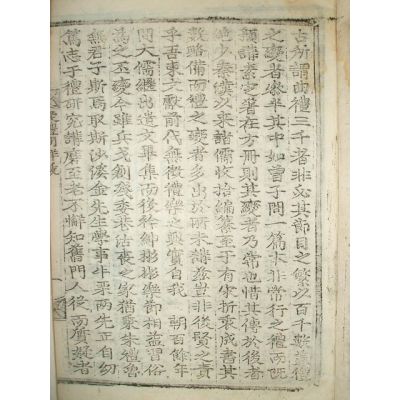 古所謂曲禮三千者非必其部目之繁以百千數蓋禮
之變者衆乎其中如曾子問一篇本非常行之禮而旣
類講素定筆在方冊則其變者乃常也惜其傳於後者
絶少秦漢以來諸儒收拾編纂至于有家折衷成書其
數略備而禮之變者多出於所未講玆豈非後賢之責
乎吾東文獻前代無徵禮學之興實自我 朝百餘年
間大儒繼出遺文畢集而後紳彬彬樂節相益習俗
爲之丕變今雖兵戈創殘委巷治喪之家猶秉朱禮魯
無君子斯焉取斯沙溪金先生學事牛栗兩先正自幼
篤志于禮研究講磨至老不懈知舊門人從而質疑者
疑禮問解序